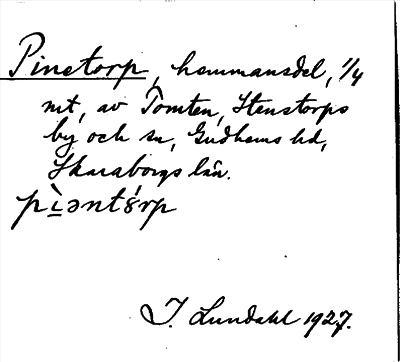 Pinetorp, hemmansdel, 1/4
mt, av Tomten, Stenstorps
by och sn, Gudhems hd,
Skaraborgs län.
pìəntórp
I. Lundahl 1927.